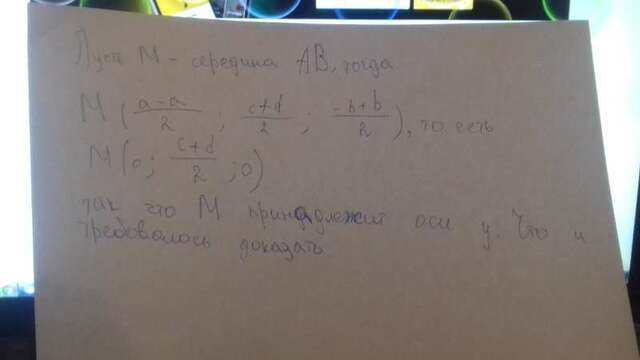 Пусть M - середина AB, тогда
M(\frac{a-a}{2}; \frac{c+d}{2}; \frac{-b+b}{2}), то есть
M(0; \frac{c+d}{2}; 0)
так что M принадлежит оси y. Что и
требовалось доказать